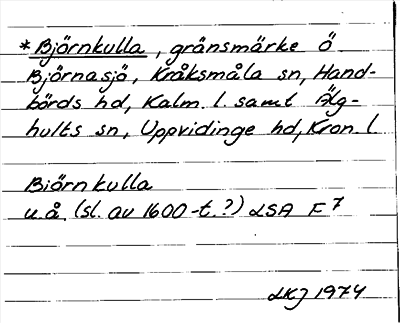 *Björnkulla, gränsmärke Ö
Björnasjö, Kråksmåla sn, Hand-
börds hd, Kalm. l. samt Älg-
hults sn, Uppvidinge hd, Kron. l.
Biörnkulla
u.å. (sl. av 1600-t.?) LSA F 7
LKJ 1974